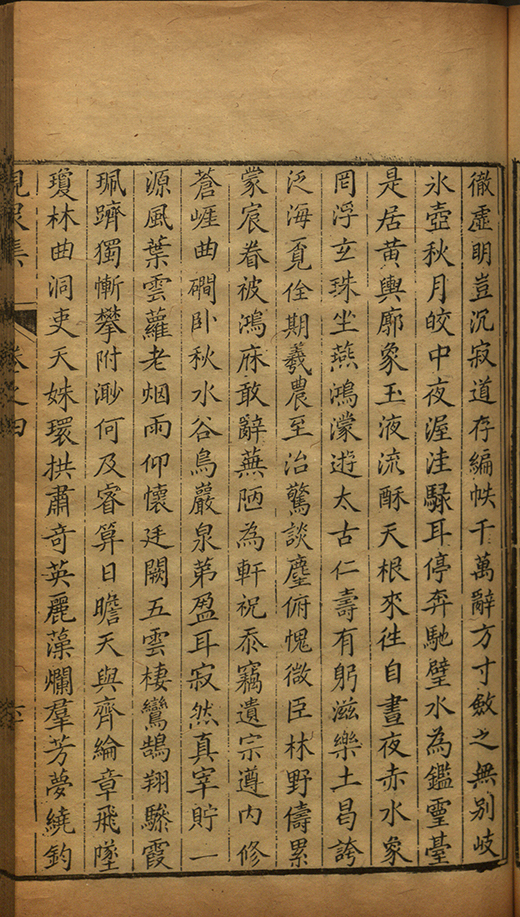 徹虛明豈沉寂道存編帙千萬辭方寸斂之無別岐
氷壺秋月皎中夜渥洼騄耳停奔馳璧水為鑑靈䑓
是居黃輿廓象玉液流酥天根來徃自晝夜赤水象
罔浮玄珠坐燕鴻濛逰太古仁壽有躬滋樂土昌誇
泛海覓佺期羲農至治驚談麈俯愧微臣林野儔累
蒙宸眷被鴻庥敢辭蕪陋為軒祝忝竊遺宗遵内修
蒼崕曲磵卧秋水谷鳥巖泉第盈耳寂然真宰貯一
源風葉雲蘿老烟雨仰懷廷闕五雲棲鸞鵠翔驂霞
珮躋獨慚攀附渺何及睿算日瞻天與齊綸章飛墜
瓊林曲洞吏天姝環拱肅奇英麗藻爛羣芳夢繞鈞
峴泉集
卷之四